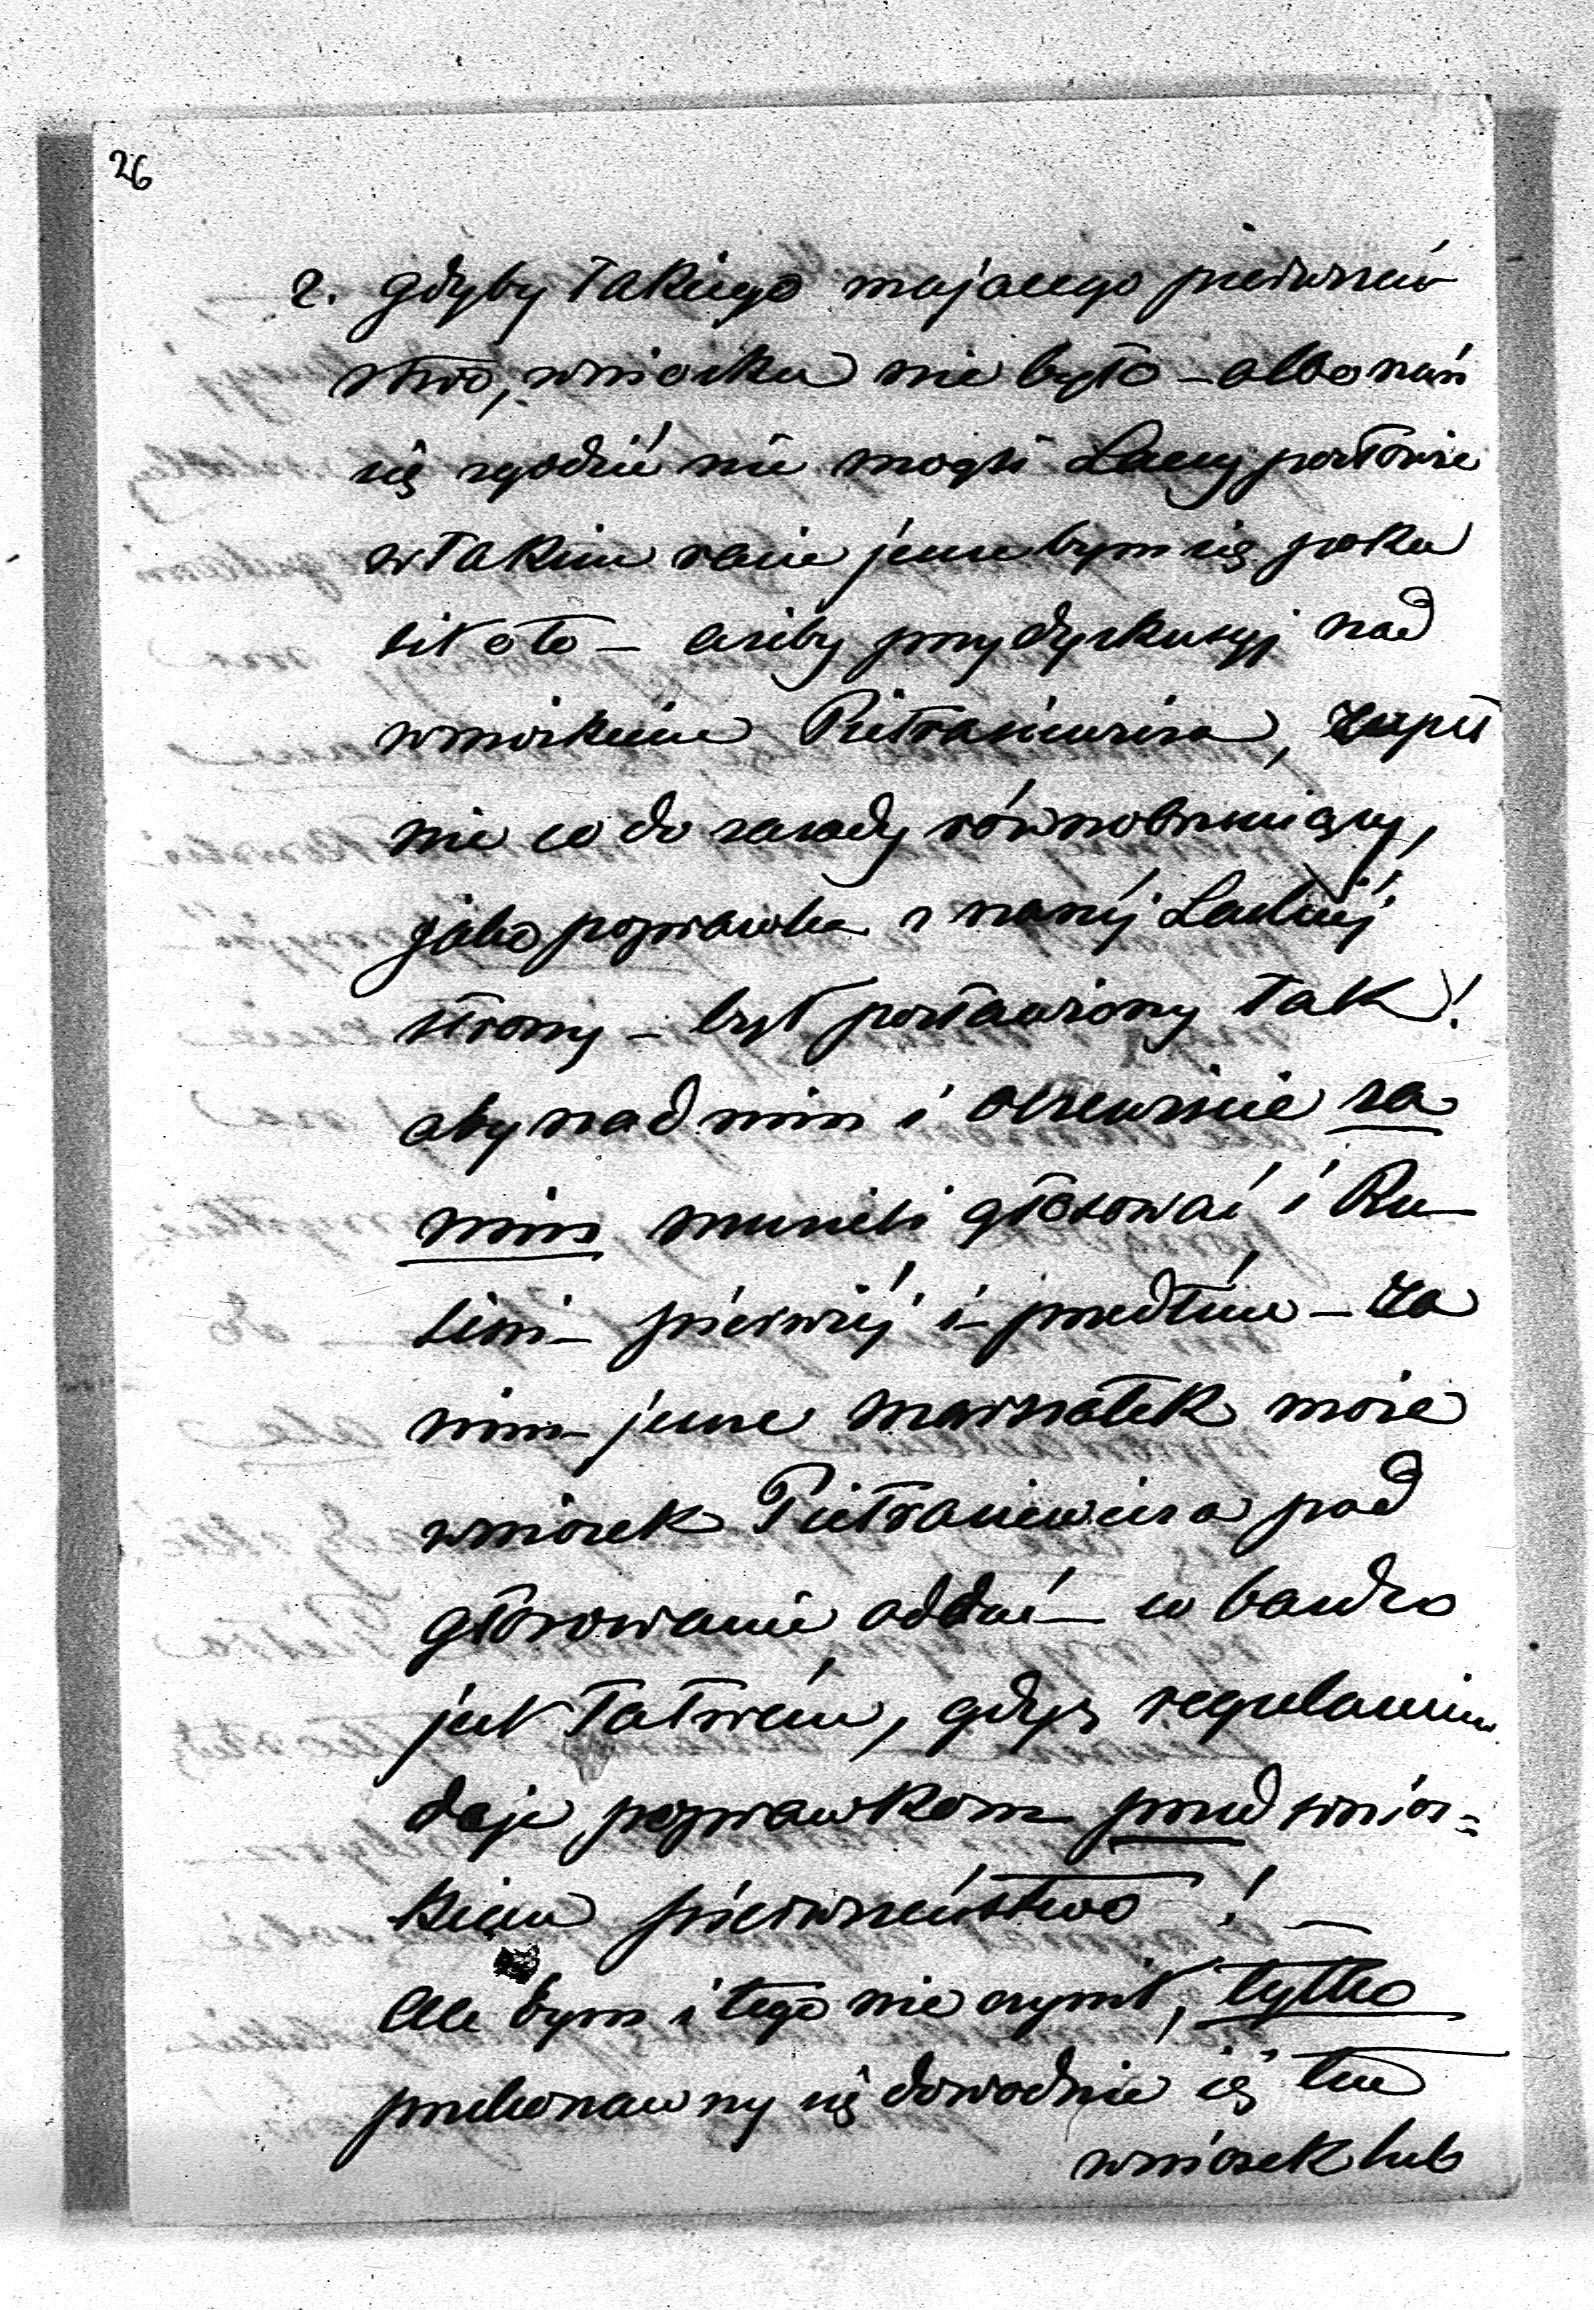 26
2. gdyby takiego mającego pierwszeń
stwo, wniosku nie było – albo nań
się zgodzić nie mogli Laccy posłowie
w takim razie jeszcze bym się poku
sił o to – ażeby przy dyskusyj nad
wnioskiem Pietrasiewicza, zupeł
nie co do zasady równobrzmiący,
jako poprawka z naszéj Lackiéj
strony – był postawiony tak!
aby nad nim i oczewiście za
nim musieli głosować i Ru
sini – pierwéj i – przedtém – za
nim jeszcze marszałek może
wniosek Pietrasiewicza pod
głosowanie oddać – co bardzo
jest łatwém, gdyż regulamin
daje poprawkom – przed wnios=
kiem pierwszeństwo! –
Ale bym i tego nie czynił, tylko
przekonawszy się dowodnie iż ten
wniosek lub